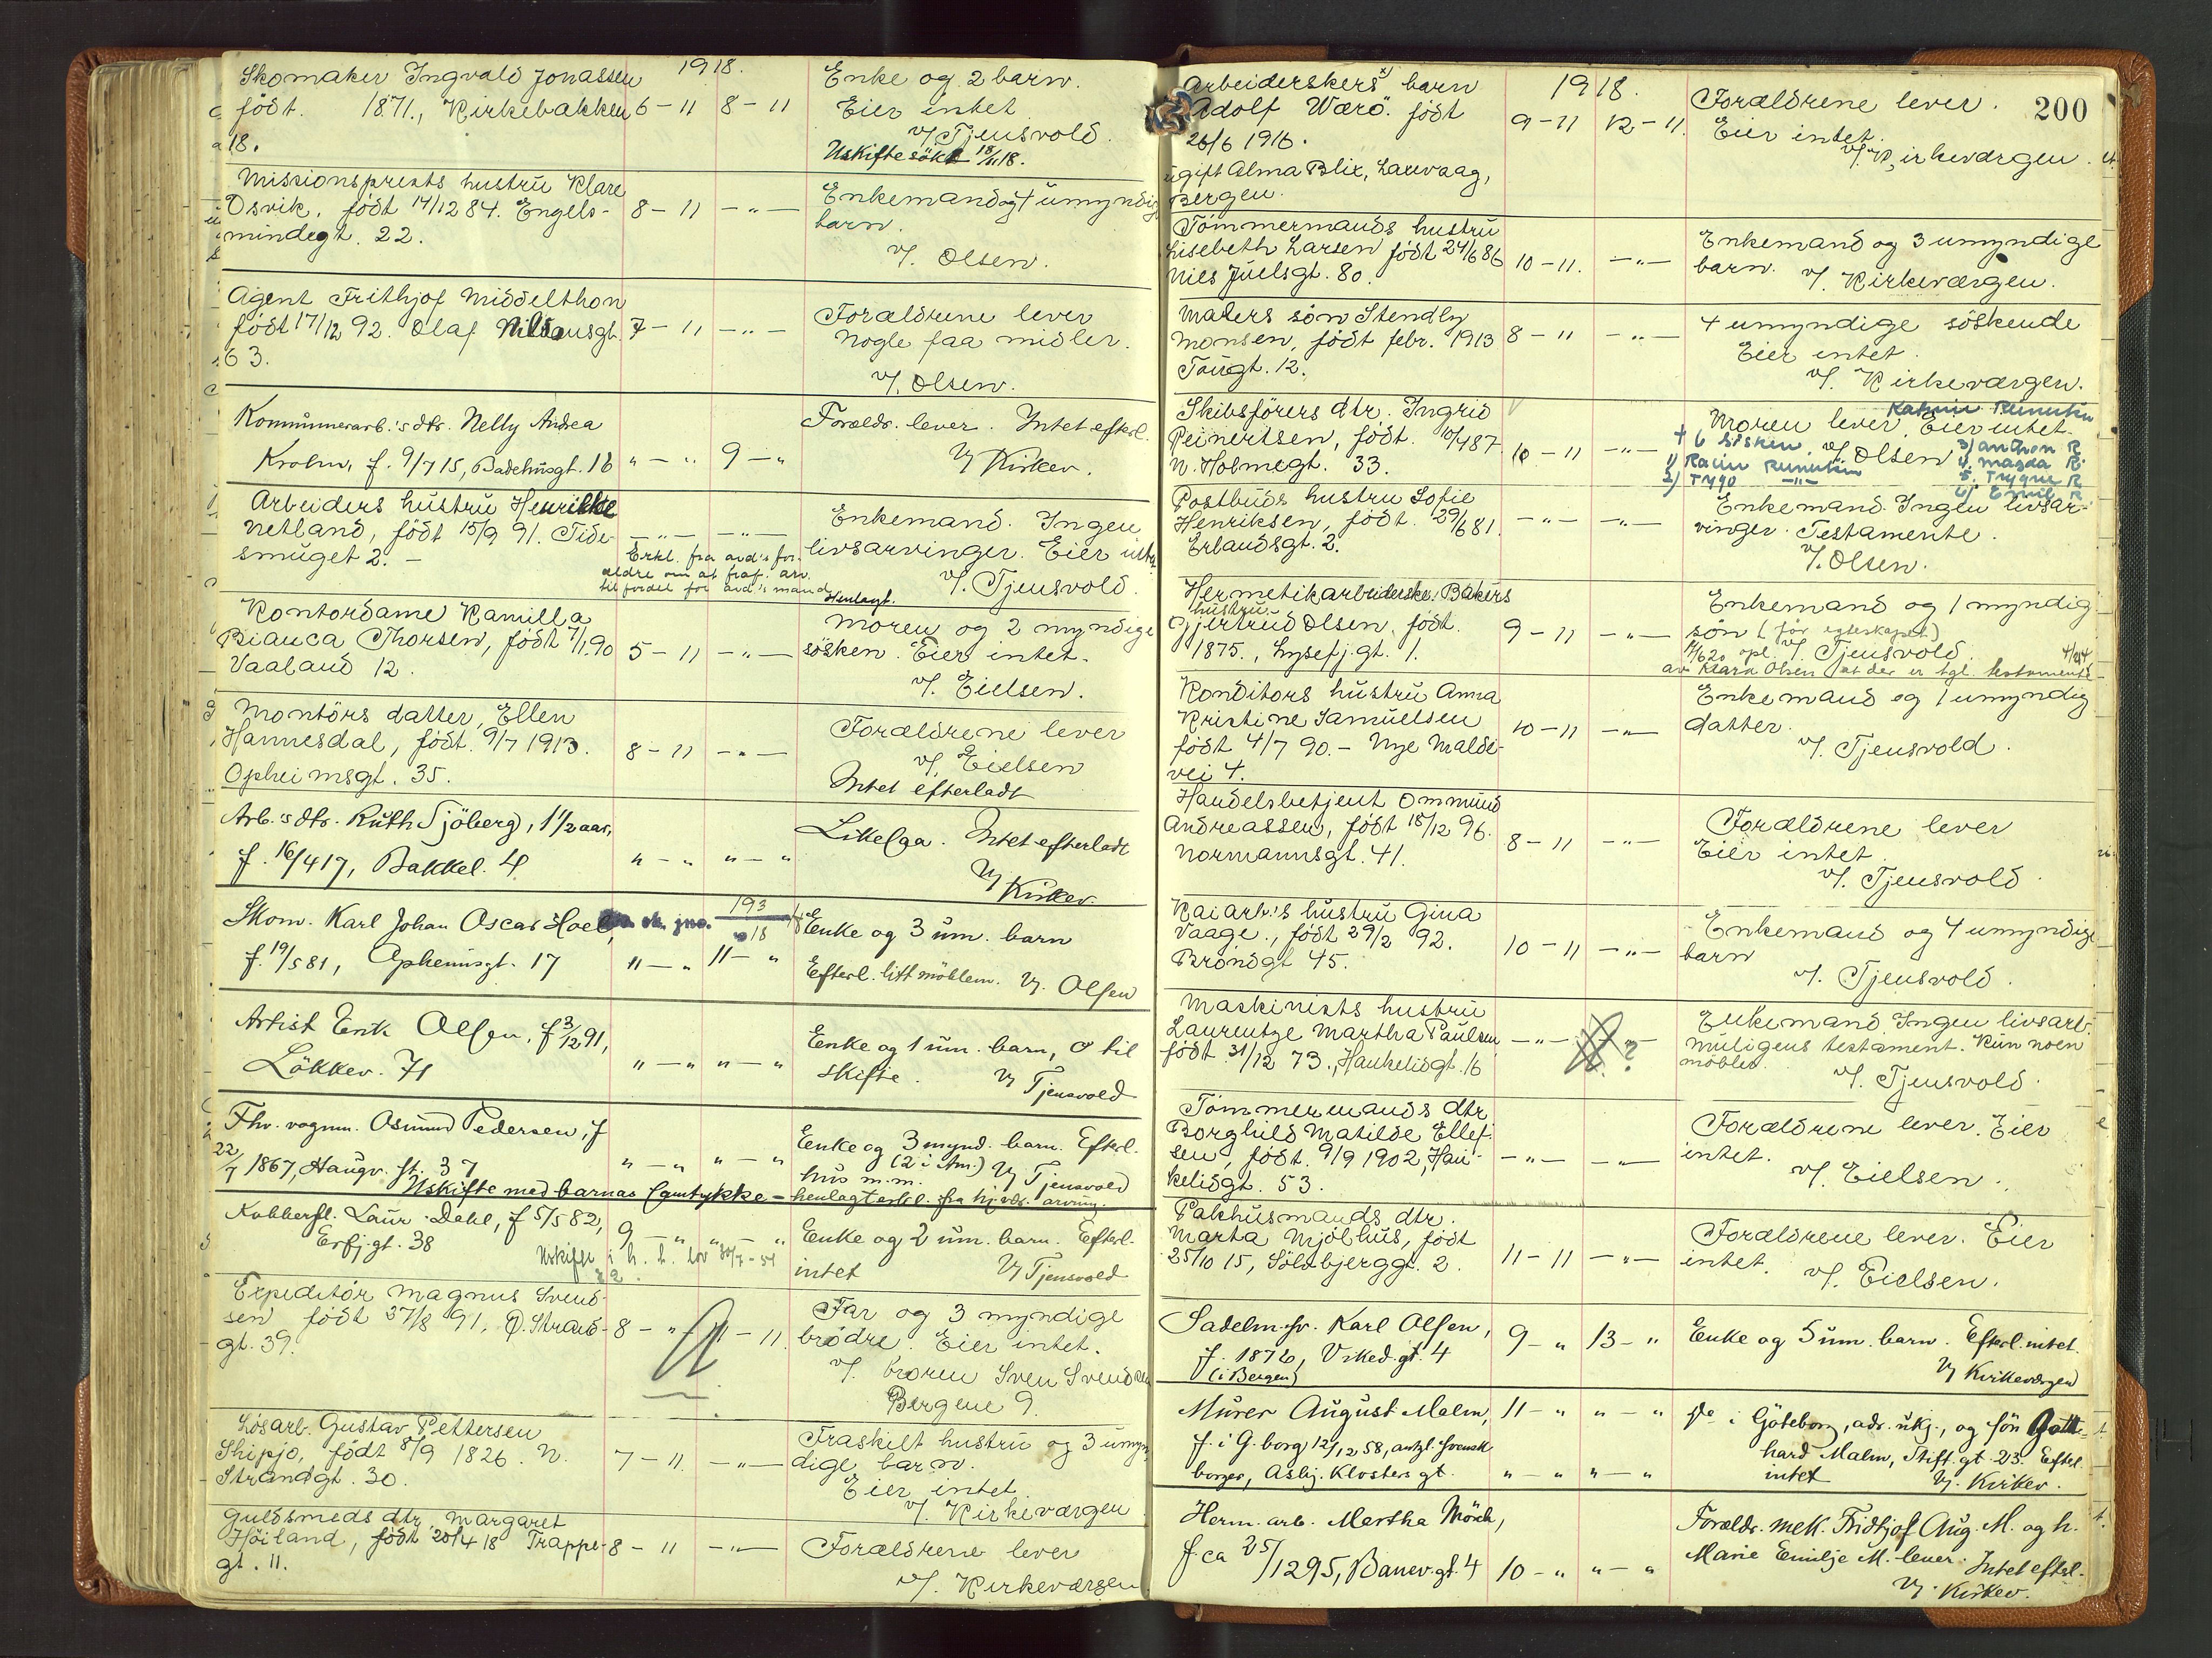 1918.
Skomaker Ingvald Jonassen
født. 1871., Kirkebakken 6 - 11 8 - 11
18.
Enke og 2 barn.
Eier intet
v/ Tjensvold.
Uskifte søkt 18/11 18.
Missionsprests hustru Klare
Osvik, født 14/12 84. Engels- 8 - 11 - " -
mindegt. 22.
Enkemand og 4 umyndig
barn.
v/. Olsen.
Agent Frithjof Middelthon
født 17/12 92. Olaf Nilsensgt. 7 - 11 - " -
63.
Forældrene lever
Nogle faa midler.
v/. Olsen.
Kommunearb.'s dtr. Nelly Andrea
Krohn, f. 9/7 15, Badehusgt. 16 " - " 9 - "
Forældr. lever. Intet efterl.
v/ Kirkev.
Arbeiders hustru Henrikke
Netland, født 15/9 91. Tide- - " - - " -
smuget 2. -
Erkl. fra avd's for-
ældre om at fraf. arv
til fordel for avd's mand
Henlagt.
Enkemand. Ingen
livsarvinger. Eier intet
v/. Tjensvold.
Kontordame Kamilla
Bianca Thorsen, født 7/1 90 5 - 11 - " -
Vaaland 12.
Moren og 2 myndige
søsken. Eier intet.
v/. Eielsen.
Montørs datter, Ellen
Hannesdal, født. 9/7 1913. 8 - 11 - " -
Opheimsgt. 35.
Forældrene lever
v/. Eielsen
Intet efterladt
Arb.'s dtr. Ruth Sjöberg, 1 1/2 aar,
f. 16/4 17, Bakkel. 4 " - " " - "
Likesaa. Intet efterladt
v/ Kirkev.
Skom. Karl Johan Oscar Hoel,
f. 19/5 81, Opheimsgt. 17 11 - " 11 - "
193
18
Enke og 3 um. barn
Efterl. litt møblem. v/. Olsen
Artist Erik Olsen, f 3/12 91,
Løkkev. 71 " - " " - "
Enke og 1 um. barn, 0 til
skifte. v/ Tjensvold
Fhv. vognm. Osmund Pedersen, f
22/7 1867, Haugv. st. 37 " - " " - "
Enke og 3 mynd. barn. Efterl.
(2 i Am.)
hus m.m. v/ Tjensvold
Uskifte med barnas samtykke - henlagt
Kobbersl. Laur. Dahl, f 5/5 82, 9 - " " - "
Erfj.gt. 38
Uskifte i h. t. lov 30/7 - 54
Enke og 2 um. barn. Efterl.
intet v/ Tjensvold
Expeditør Magnus Svend-
sen født 27/8 91, Ø. Strand- 8 - " 11 - 11.
gt. 39.
Far og 3 myndige
brødre. Eier intet.
v/. broren Sven Svendsen
Bergene 9.
Løsarb. Gustav Pettersen
Skipjo, født 8/9 1826. N. 7 - 11 - " -
Strandgt. 30.
Fraskilt hustru og 3 umyn-
dige barn.
Eier intet.
v/. Kirkeværgen
Guldsmeds dtr. Margaret
Høiland, født 20/4 18 Trappe- 8 - 11 - " -
gt. 11.
Forældrene lever
v/. Kirkeværgen
200
1918.
Arbeiderskers x) barn
Adolf Værø. født 9 - 11 12 - 11.
26/6 1916.
ugift Alma Blix, Laxevaag,
Bergen.
Forældrene lever.
Eier intet.
v/. Kirkeværgen.
Tømmermands hustru
Lisebeth Larsen født 24/6 86 10 - 11. - " -
Niels Juelsgt. 80.
Enkemand og 3 umyndige
barn. v/. Kirkeværgen.
Malers søn Stendly
Monsen, født febr. 1913 8 - 11 - " -
Taugt. 12.
4 umyndige søskende
Eier intet.
v/. Kirkeværgen.
Skibsførers dtr. Ingrid
Peinertsen, født. 10/4 87. 10 - 11 - " -
N. Holmegt. 33.
Moren lever. Eier intet.
+ 6 søsken. v/ Olsen 3) Anthon R
4. Magda R.
2) Trygo - " - 5. Trygve R
6) Emil R
Postbuds hustru Sofie
Henriksen, født. 29/6 81. - " - - " -
Erlandsgt. 2.
Enkemand. Ingen livsar-
vinger. Testamente.
v/. Olsen.
Hermetikarbeiderske. Bakers
hustru
Gjertrud Olsen, født. 9 - 11 - " -
1875., Lysefj.gt. 1.
Enkemand og 1 myndig
søn (før egteskapet)
v/. Tjensvold.
av Klara Olsen at der er tgl. testamente
Konditors hustru Anna
Kristine Samuelsen 10 - 11 - " -
født 4/7 90. - Nye Malde-
vei 4.
Enkemand og 1 umyndig
datter.
v/. Tjensvold.
Handelsbetjent Ommund
Andreassen, født 18/12 96. 8 - 11 - " -
Normannsgt. 41.
Forældrene lever
Eier intet.
v/. Tjensvold.
Kaiarb.'s hustru Gina
Vaage., født 29/2 92. 10 - 11 - " -
Brøndgt 45.
Enkemand og 4 umyndige
barn
v/. Tjensvold.
Maskinists hustru
Laurentze Martha Paulsen - " - ?
født 31/12 73., Haukelidgt. 16
Enkemand. Ingen livsarv.
muligens testament. Kun noen
møbler. v/. Tjensvold.
Tømmermands dtr
Borghild Matilde Ellef-
sen, født. 9/9 1902, Hau- - " - - " -
kelidgt. 53.
Forældrene lever. Eier
intet.
v/. Eielsen.
Pakhusmands dtr.
Marta Mjølhus, født
25/10 15, Sølvbjerggt. 2. 11 - 11 - " -
Forældrene lever. Eier
intet. v/. Eielsen.
Sadelm.sv. Karl Olsen, 9 - " 13 - "
f. 1876, Vikedgt. 4
(i Bergen)
Enke og 5 um. barn. Efterl. intet.
v/ Kirkeværgen
Murer August Malm, 11 - " " - "
f. i G.borg 12/12 58, antgl. svensk
borger, Asbj. Klostersgt. " - " " - "
i Göteborg, adr. ukj., og søn Gott-
hard Malm, Stift.gt. 23. Efterl.
intet v/. Kirkev.
Herm. arb. Martha Mörch,
f. ca 25/12 95, Banev.gt. 4 10 - " " - "
Forældr. mek. Fridtjof Aug. M. og h.
Marie Emilje M. lever. Intet efterl.
v/. Kirkev.